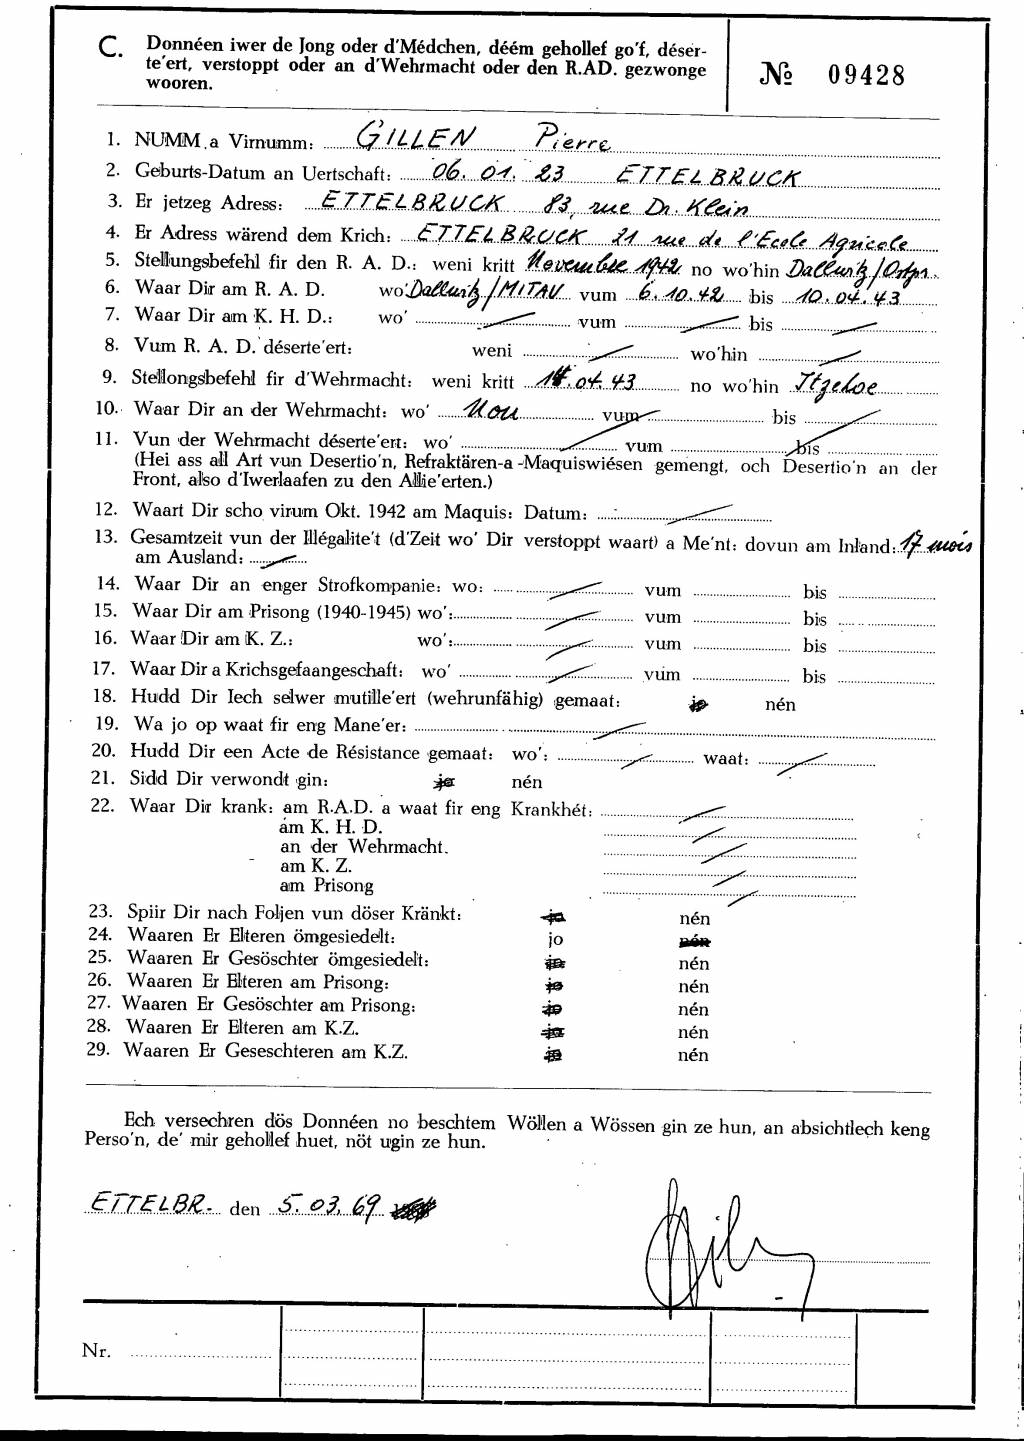 C. Donnéen iwer de Jong oder d'Médchen, déém gehollef go'f, déser-
te'ert, verstoppt oder an d'Wehrmacht oder den R.AD. gezwonge
wooren.
№ 09428
1. NUMM a Virnumm: GILLEN Pierre
2. Geburts-Datum an Uertschaft: 06. 01. 23 ETTELBRUCK
3. Er jetzeg Adress: ETTELBRUCK 83, rue Dr. Klein
4. Er Adress wärend dem Krich: ETTELBRUCK 21 rue de l'Ecole Agricole
5. Stellungsbefehl fir den R. A. D.: weni kritt Novembre 1942 no wo'hin Dallwitz/Ostpr.
6. Waar Dir am R. A. D. wo' Dallwitz/MITAU vum 6.10.42 bis 10.04.43
7. Waar Dir am K. H. D.: wo' vum bis
8. Vum R. A. D. déserte'ert: weni wo'hin
9. Stellongsbefehl fir d'Wehrmacht: weni kritt .04.43 no wo'hin Itzehoe
10. Waar Dir an der Wehrmacht: wo' Non vum bis
11. Vun der Wehrmacht déserte'ert: wo' vum bis
(Hei ass all Art vun Desertio'n, Refraktären-a-Maquiswiésen gemengt, och Desertio'n an der
Front, also d'Iwerlaafen zu den Allie'erten.)
12. Waart Dir scho virum Okt. 1942 am Maquis: Datum:
13. Gesamtzeit vun der Illégalite't (d'Zeit wo' Dir verstoppt waart) a Me'nt: dovun am Inland: 17 mois
am Ausland:
14. Waar Dir an enger Strofkompanie: wo: vum bis
15. Waar Dir am Prisong (1940-1945) wo': vum bis
16. Waar Dir am K. Z.: wo': vum bis
17. Waar Dir a Krichsgefaangeschaft: wo' vum bis
18. Hudd Dir Iech selwer mutille'ert (wehrunfähig) gemaat: jo nén
19. Wa jo op waat fir eng Mane'er:
20. Hudd Dir een Acte de Résistance gemaat: wo': waat:
21. Sidd Dir verwondt gin: jo nén
22. Waar Dir krank: am R.A.D. a waat fir eng Krankhét:
am K. H. D.
an der Wehrmacht.
am K. Z.
am Prisong
23. Spiir Dir nach Foljen vun döser Kränkt: jo nén
24. Waaren Er Elteren ömgesiedelt: jo nén
25. Waaren Er Gesöschter ömgesiedelt: jo nén
26. Waaren Er Elteren am Prisong: jo nén
27. Waaren Er Gesöschter am Prisong: jo nén
28. Waaren Er Elteren am K.Z. jo nén
29. Waaren Er Geseschteren am K.Z. jo nén
Ech versechren dös Donnéen no beschtem Wöllen a Wössen gin ze hun, an absichtlech keng
Perso'n, de' mir gehollef huet, nöt ugin ze hun.
ETTELBR. den 5.03.69
Nr.